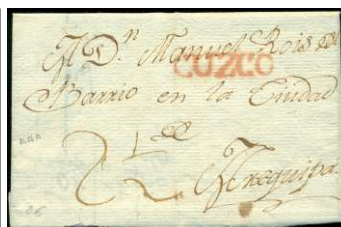 A Dn. Manuel Rois del
CUZCO
Barrio en la Ciudad
de
Arequipa.